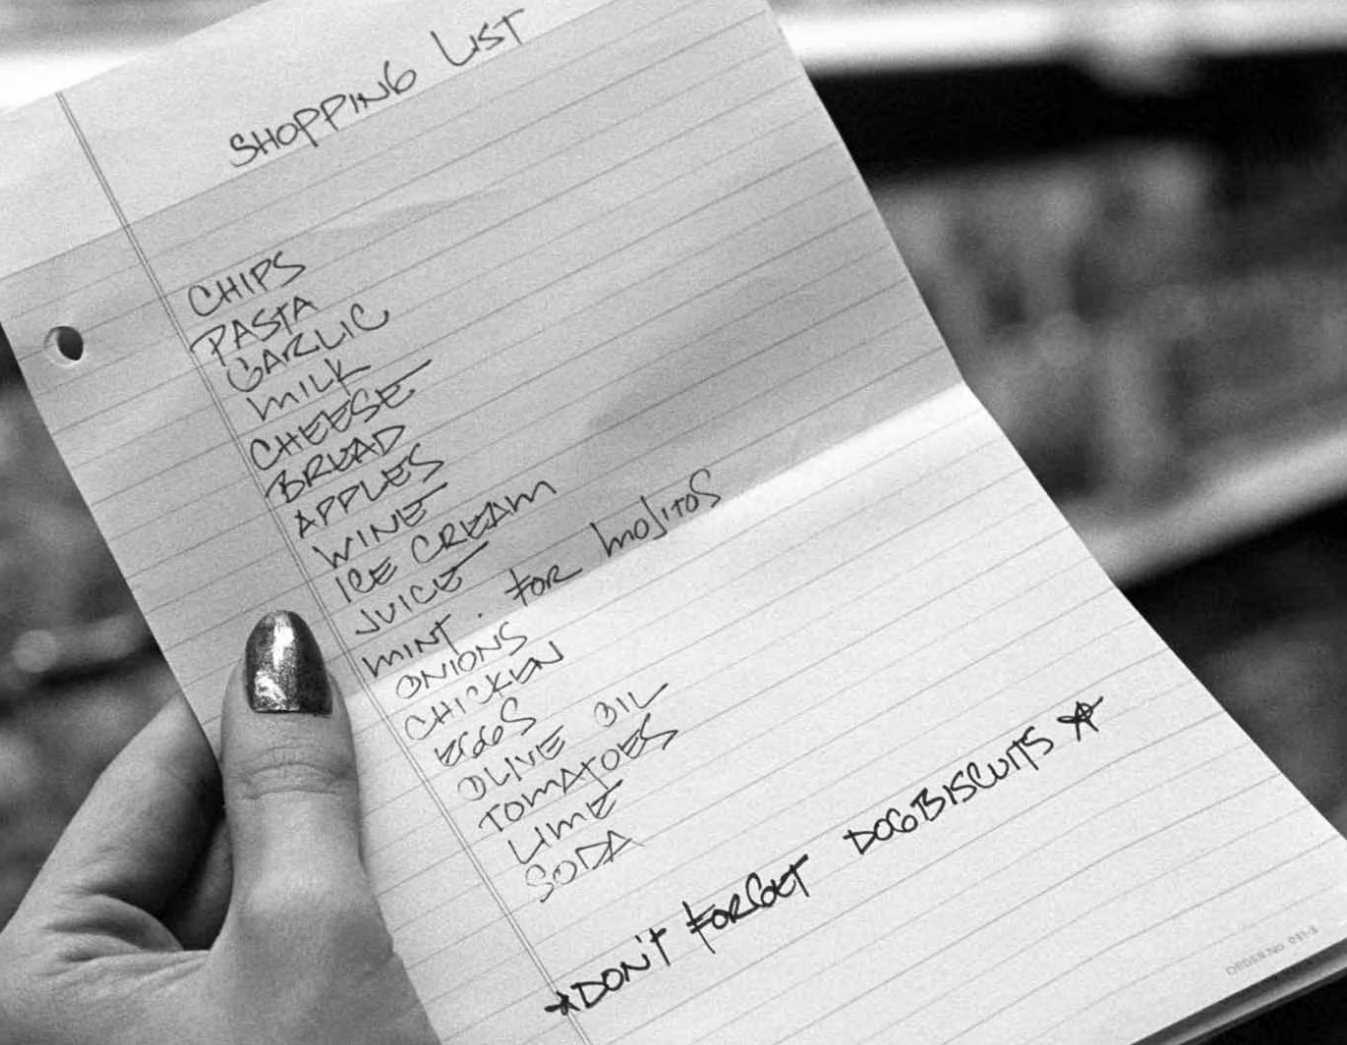 SHOPPING LIST
CHIPS
PASTA
GARLIC
MILK
CHEESE
BREAD
APPLES
WINE
ICE CREAM
JUICE
MINT. FOR MOJITOS
ONIONS
CHICKEN
EGGS
OLIVE OIL
TOMATOES
LIME
SODA
*DON'T FORGET DOG BISCUITS *
ORDER No.